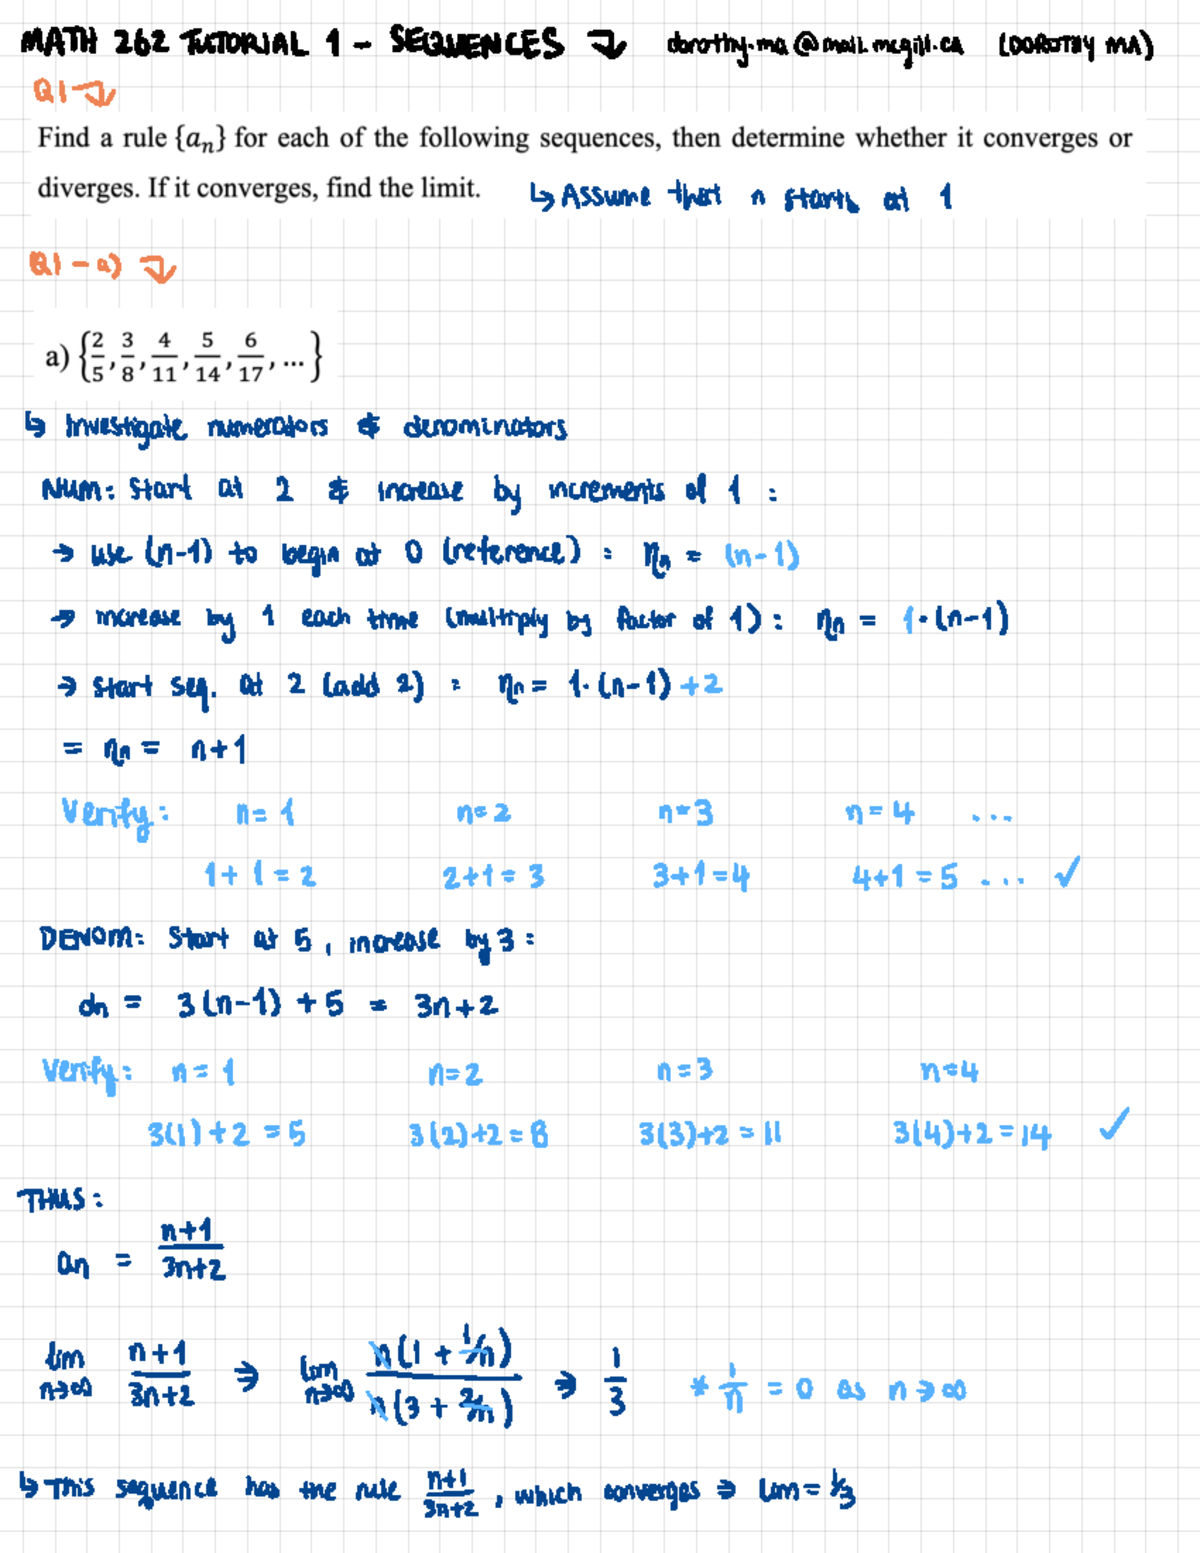 MATH 262 TUTORIAL 1 - SEQUENCES ↴ dorothy.ma@mail.mcgill.ca (DOROTHY MA)
Q1 ↴
Find a rule {aₙ} for each of the following sequences, then determine whether it converges or
diverges. If it converges, find the limit. ↳ Assume that n starts at 1
Q1 - a) ↴
a) {2/5, 3/8, 4/11, 5/14, 6/17, ...}
↳ Investigate numerators & denominators
NUM: Start at 2 & increase by increments of 1 :
→ use (n-1) to begin at 0 (reference) : nₙ = (n-1)
→ increase by 1 each time (multiply by factor of 1) : nₙ = 1·(n-1)
→ start seq. at 2 (add 2) : nₙ = 1·(n-1) +2
= nₙ = n+1
Verify: n=1 n=2 n=3 n=4 ...
1+1=2 2+1=3 3+1=4 4+1=5 ... ✓
DENOM: Start at 5, increase by 3 :
dn = 3(n-1) +5 = 3n+2
Verify: n=1 n=2 n=3 n=4
3(1)+2=5 3(2)+2=8 3(3)+2=11 3(4)+2=14 ✓
THUS:
an = (n+1)/(3n+2)
lim n→∞ (n+1)/(3n+2) ⇒ lim n→∞ n(1+1/n)/n(3+2/n) ⇒ 1/3 * 1/n = 0 as n→∞
↳ This sequence has the rule (n+1)/(3n+2), which converges ⇒ lim = 1/3